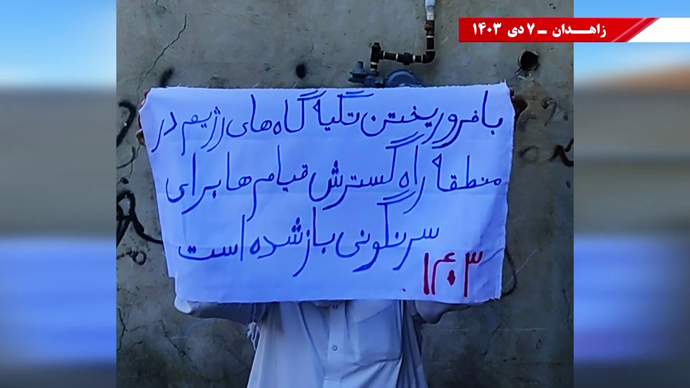 زاهـدان ـ ۷ دی ۱۴۰۳
با فرو ریختن تکیه گاه های رژیم در
منطقه راه گسترش قیام ها برای
سرنگونی باز شده است
۱۴۰۳